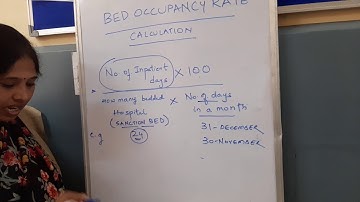 BED OCCUPANCY RATE
CALCULATION
No of Inpatient days × 100
How many bedded Hospital × No. of days in a month
(SANCTION BED)
31 - DECEMBER
e.g 24
30 - NOVEMBER